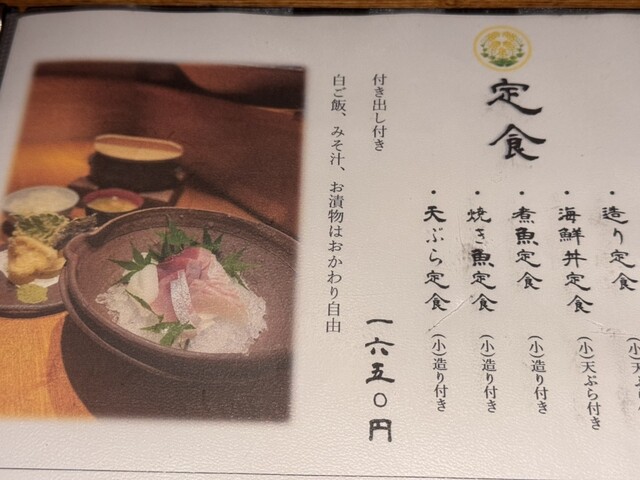 定食
・造り定食
・海鮮丼定食 (小)天ぷら付き
・煮魚定食 (小)造り付き
・焼き魚定食 (小)造り付き
・天ぷら定食 (小)造り付き
付き出し付き
白ご飯、みそ汁、お漬物はおかわり自由
一六五〇円